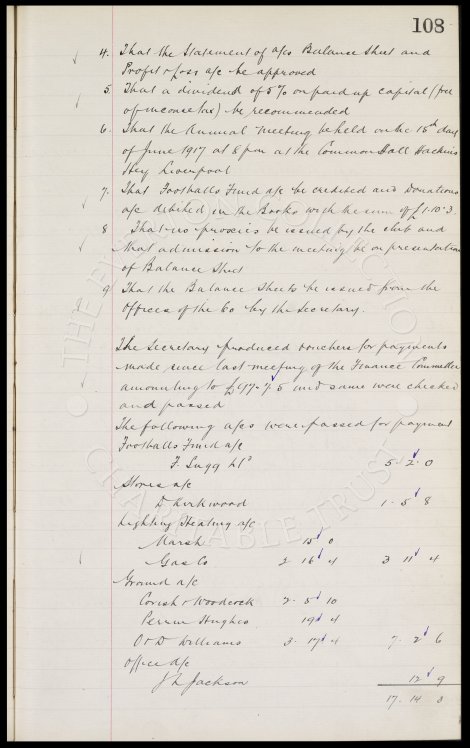 108
4. That the Statement of a/cs Balance Sheet and
Profit & Loss a/c be approved
5. That a dividend of 5% on paid up capital (free
of income tax) be recommended
6. That the Annual Meeting be held on the 15th day
of June 1917 at 8 pm at the Common Hall Hackins
Hey Liverpool
7. That Footballs Fund a/c be credited and Donations
a/c debited in the Books with the sum of £1.10.3
8 That no proxies be issued by the club and
that admission to the meeting be on presentation
of Balance Sheet
9 That the Balance Sheets be issued from the
Offices of the Co by the Secretary.
The Secretary produced vouchers for payments
made since last meeting of the Finance Committee
amounting to 7. 5 and same were checked
and passed
The following a/cs were passed for payment
Footballs Fund a/c
F. Sugg Ltd 5. 2. 0
Stores a/c
D Kirkwood 1. 5. 8
Lighting Heating a/c
Marsh 15 0
Gas Co 2 16 4 3 11 4
Ground a/c
Corish & Woodcock 2. 5 10
Perrin Hughes 19 4
O & D Williams 3. 17 4 7. 2 6
Office a/c
Jackson 12 9
17. 14 3
THE EVERTON COLLECTION CHARITABLE TRUST